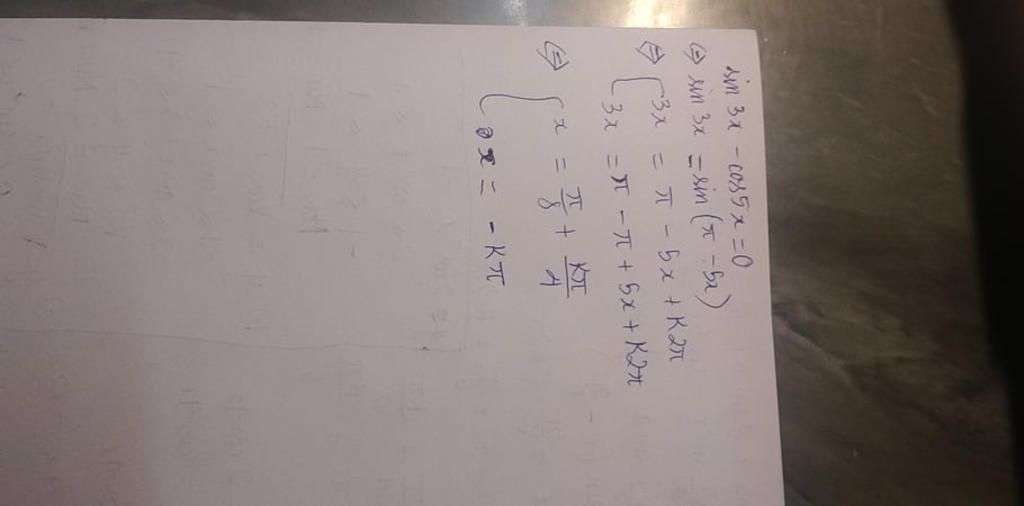 sin 3x - cos 5x = 0
⇔ sin 3x = sin (π - 5x)
⇔ { 3x = π - 5x + K2π
3x = π - π + 5x + K2π
⇔ { x = π/8 + Kπ/4
x = - Kπ